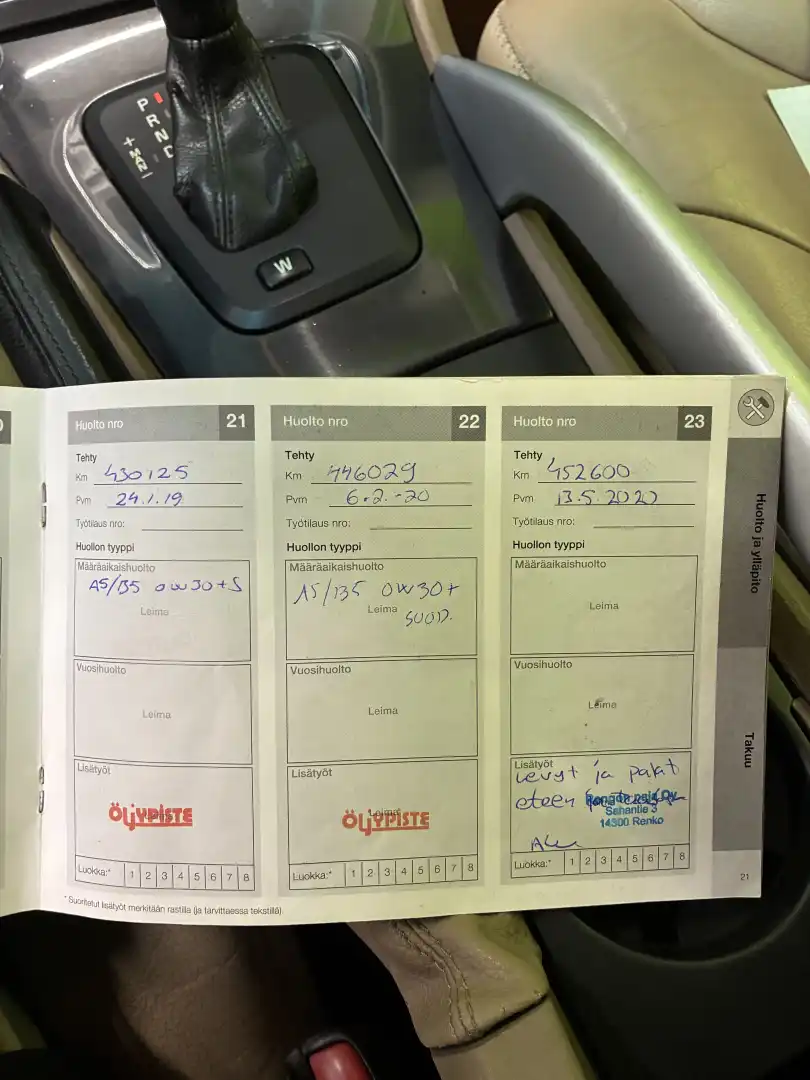 P
R
N
D
+
MAN
-
W
Huolto nro 21
Tehty
Km 430125
Pvm 24.1.19
Työtilaus nro:
Huollon tyyppi
Määräaikaishuolto
A5/B5 0W30+S
Leima
Vuosihuolto
Leima
Lisätyöt
ÖLJYPISTE
Luokka:* 1 2 3 4 5 6 7 8
* Suoritetut lisätyöt merkitään rastilla (ja tarvittaessa tekstillä).
Huolto nro 22
Tehty
Km 446029
Pvm 6.2.-20
Työtilaus nro:
Huollon tyyppi
Määräaikaishuolto
A5/B5 0W30+
Leima
SUOD.
Vuosihuolto
Leima
Lisätyöt
Leima
ÖLJYPISTE
Luokka:* 1 2 3 4 5 6 7 8
Huolto nro 23
Tehty
Km 452600
Pvm 13.5.2020
Työtilaus nro:
Huollon tyyppi
Määräaikaishuolto
Leima
Vuosihuolto
Leima
Lisätyöt
Levyt ja palat
eteen
Sahantie 3
14300 Renko
Luokka:* 1 2 3 4 5 6 7 8
Huolto ja ylläpito
Takuu
21